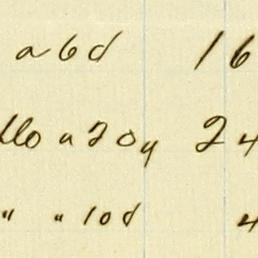 a 6d 16
do a 20y 24
" " 10d 4